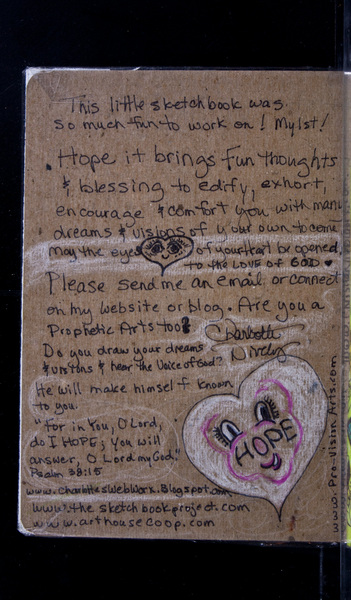 This little sketchbook was
so much fun to work on! My 1st!
Hope it brings fun thoughts
& blessing to edify, exhort,
encourage & comfort you with many
dreams & visions of your own to come
may the eyes of your heart be opened,
to the LOVE of GOD ♥
Please send me an email or connect
on my website or blog. Are you a
Prophetic Arts too?
Charlotte
Do you draw your dreams
& visions & hear the Voice of God?
He will make himself known
to you.
"For in You, O Lord,
do I HOPE; You will
answer, O Lord my God."
Psalm 38:15
HOPE
www.CharlottesWebWorx.Blogspot.com
www.thesketchbookproject.com
www.arthousecoop.com
www.Pro-VisionArts.com